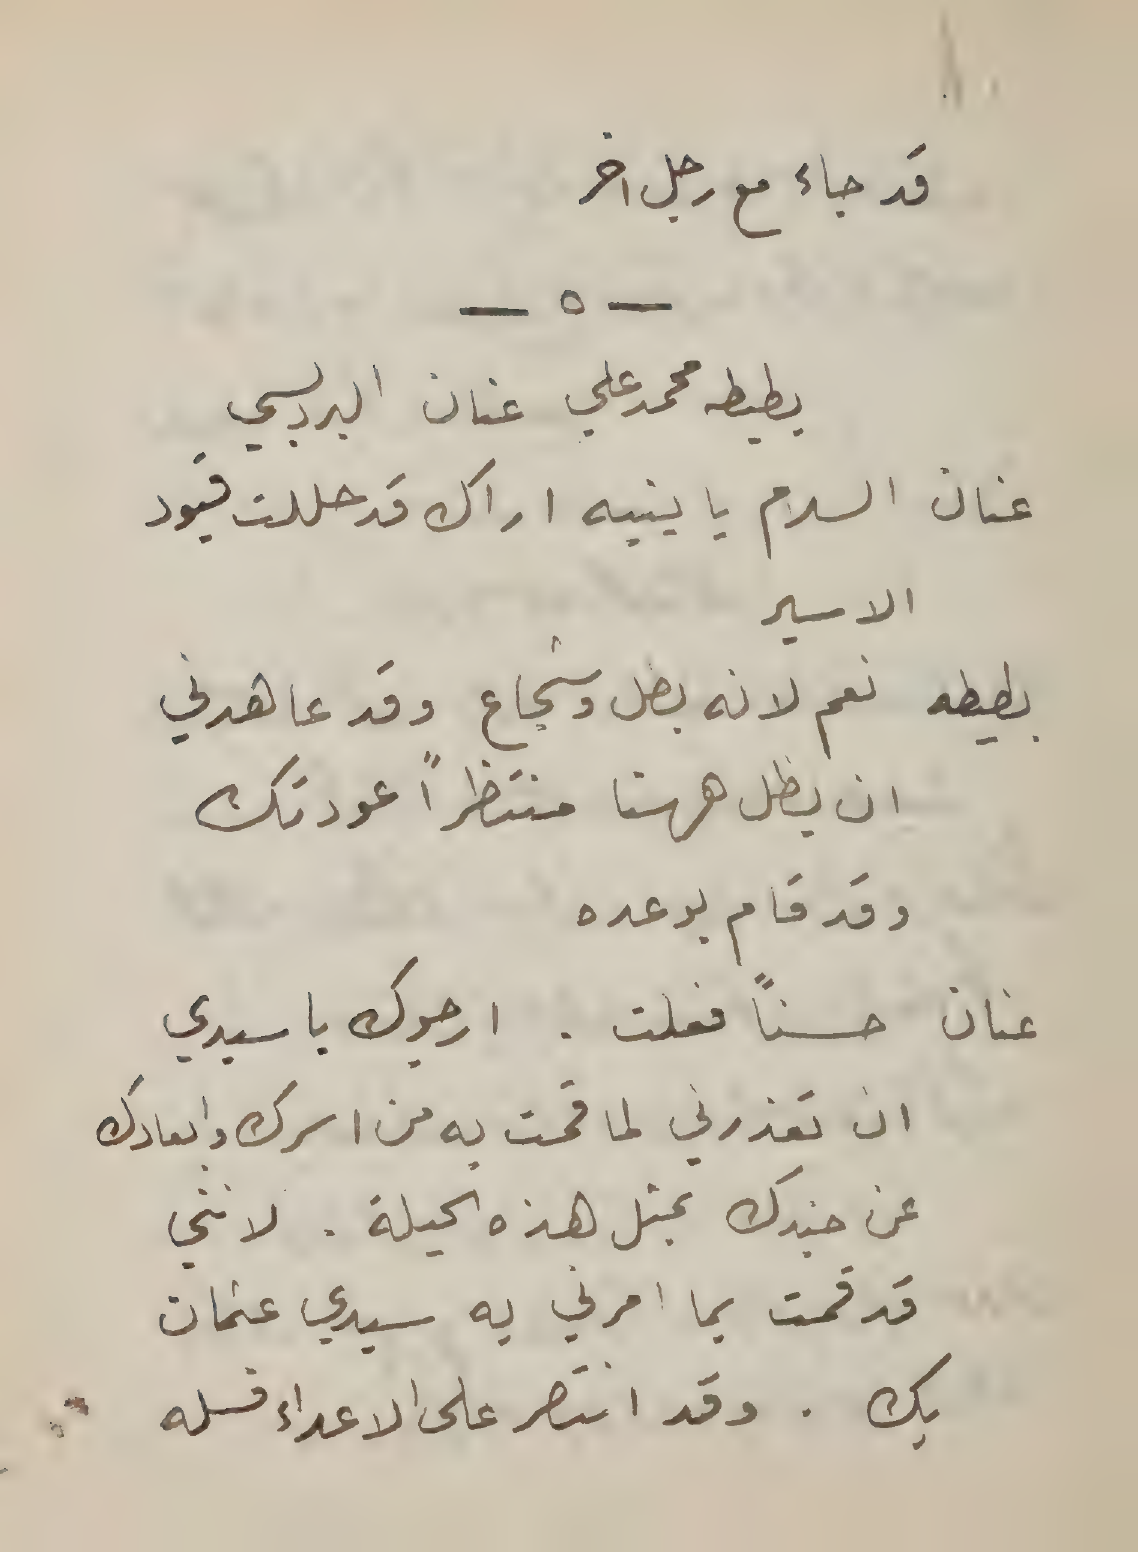 قد جاء مع رجل اخر
— ٥ —
بطيطه محمد علي عنان البرديسي
عنان السلام يا بنيه اراك قد حللت قيود
الاسير
بطيطه نعم لانه بطل وشجاع وقد عاهدني
ان يظل ههنا منتظراً عودتك
وقد قام بوعده
عنان حسناً فعلت . ارجوك يا سيدي
ان تعذرني لما قمت به من اسرك وابعادك
عن جندك بمثل هذه الحيلة . لانني
قد قمت بما امرني به سيدي عثمان
بك . وقد انتصر على الاعداء